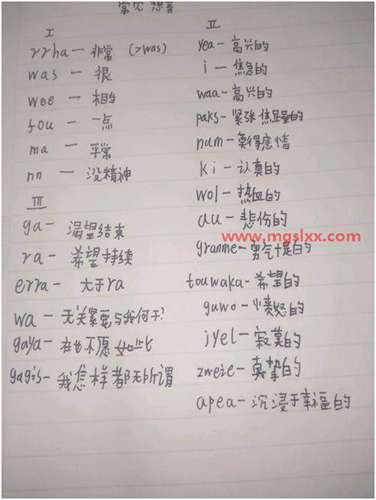 常见 想音
I
rrha — 非常 (>was)
was — 很
wee — 相当
fou — 一点
ma — 平常
nn — 没精神
III
ga — 渴望结束
ra — 希望持续
erra — 大于ra
wa — 无关紧要与我何干?
gaya — 在也不愿如此
gagis — 我怎样都无所谓
II
yea — 高兴的
i — 焦急的
waa — 高兴的
paks — 紧张焦虑的
num — 莫得感情
ki — 认真的
wol — 热血的
au — 悲伤的
www.mgslxx.com
granme — 勇气十足的
touwaka — 希望的
guwo — 愤怒的
jyel — 寂寞的
zweie — 真挚的
apea — 沉浸于幸福的